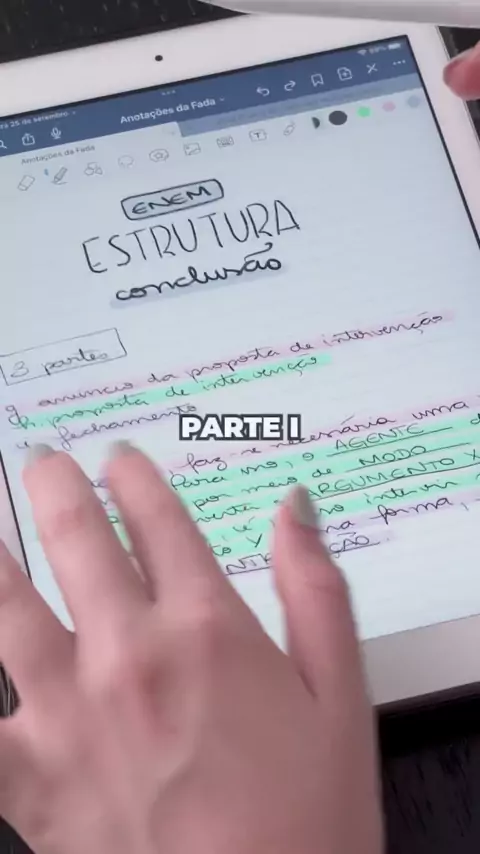 25 de setembro
69%
Anotações da Fada
Anotações da Fada
ENEM
ESTRUTURA
conclusão
3 partes
anuncio da proposta de intervenção
proposta de intervenção
fechamento
PARTE I
faz-se necessária uma
Para isso, o AGENTE
por meio de MODO
ARGUMENTO X
intervir
Y
forma,